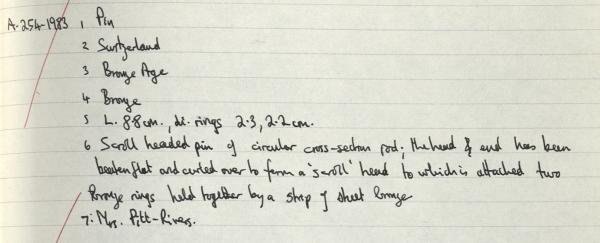 A.254-1983 1 Pin
2 Switzerland
3 Bronze Age
4 Bronze
5 L. 8.8cm., di. rings 2.3, 2.2cm.
6 Scroll headed pin of circular cross-section rod; the head & end has been
beaten flat and curled over to form a 'scroll' head to which is attached two
bronze rings held together by a strip of sheet bronze
7: Mrs. Pitt-Rivers.